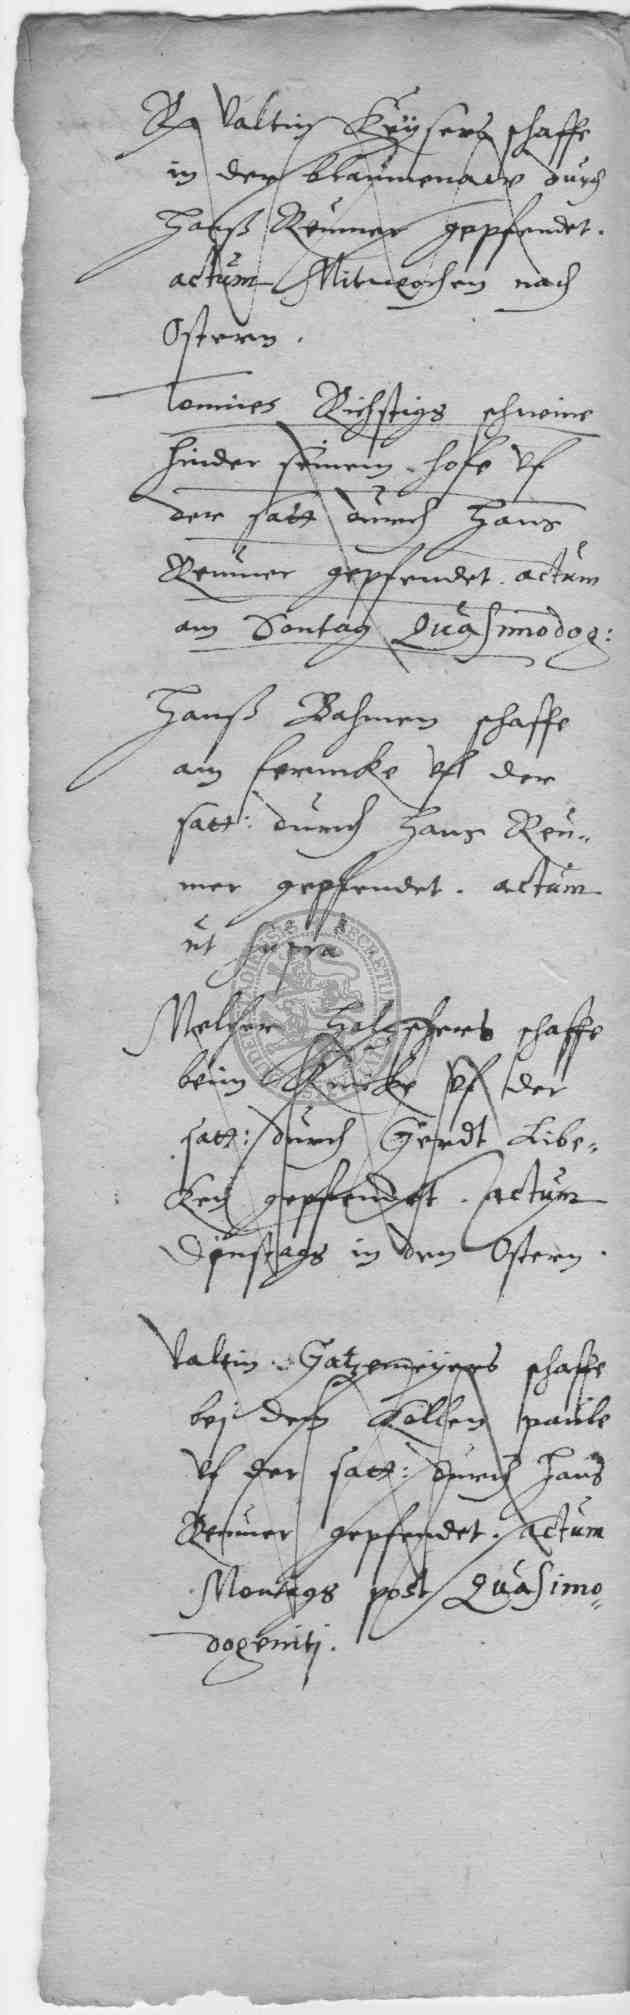 Valtin Keysers schaffe
in der blaumenaw durch
Hanß Reumer gepfendet.
actum Mitwochen nach
Ostern.
Tonnies Richstigs schweine
hinder seinem hofe vf
der satt durch Hans
Reumer gepfendet. actum
am Sontag Quasimodog:
Hanß Bahmen schaffe
am vf der
satt: durch Hans Reu-
mer gepfendet. actum
ut supra
Melcher schaffe
beim vf der
satt: durch Gerdt Libe-
gepfendet. actum
Dinstags in den Ostern.
Valtin Gatzemeyers schaffe
bei dem Kollen paule
vf der satt: durch Hans
Reumer gepfendet. actum
Montags post Quasimo-
dogeniti.